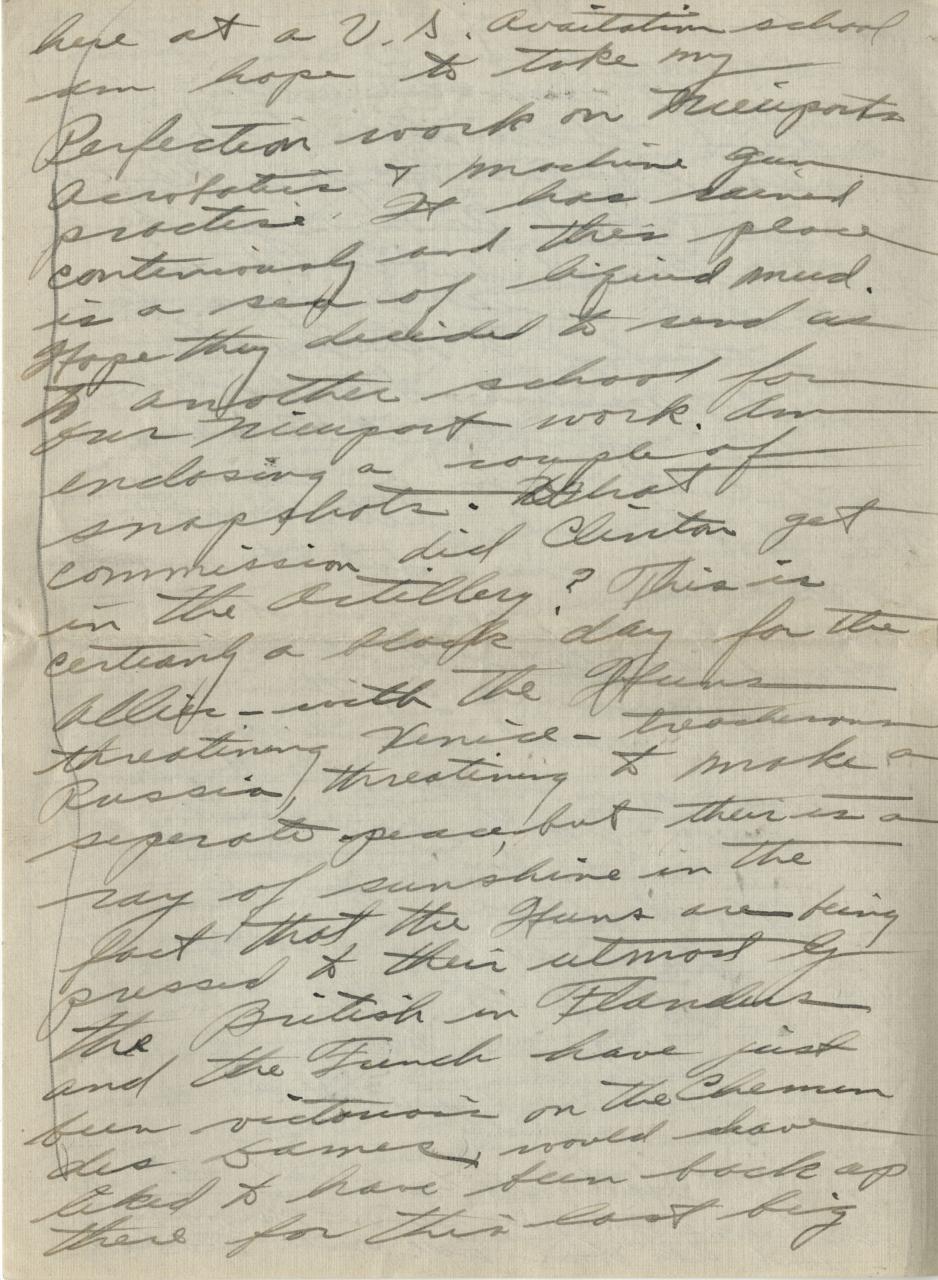 here at a U.S. Avaitation school
am hope to take my
Perfection work on Nieuports
Acrobatis & machine gun
practise. It has rained
conteniously and this place
is a sea of liquid mud.
Hope they decided to send us
to another school for
our Nieuport work. Am
enclosing a couple of
snapshots. What
commission did Clinton get
in the Artillery? This is
certianly a black day for the
Allies - with the Huns
threatining Venice - treacherous
Russia, threatining to make a
seperate peace, but their is a
ray of sunshine in the
fact that the Huns are being
pressed to their utmost by
the British in Flanders
and the French have just
been victorois on the Chemin
des Dames, would have
liked to have been back up
there for this last big